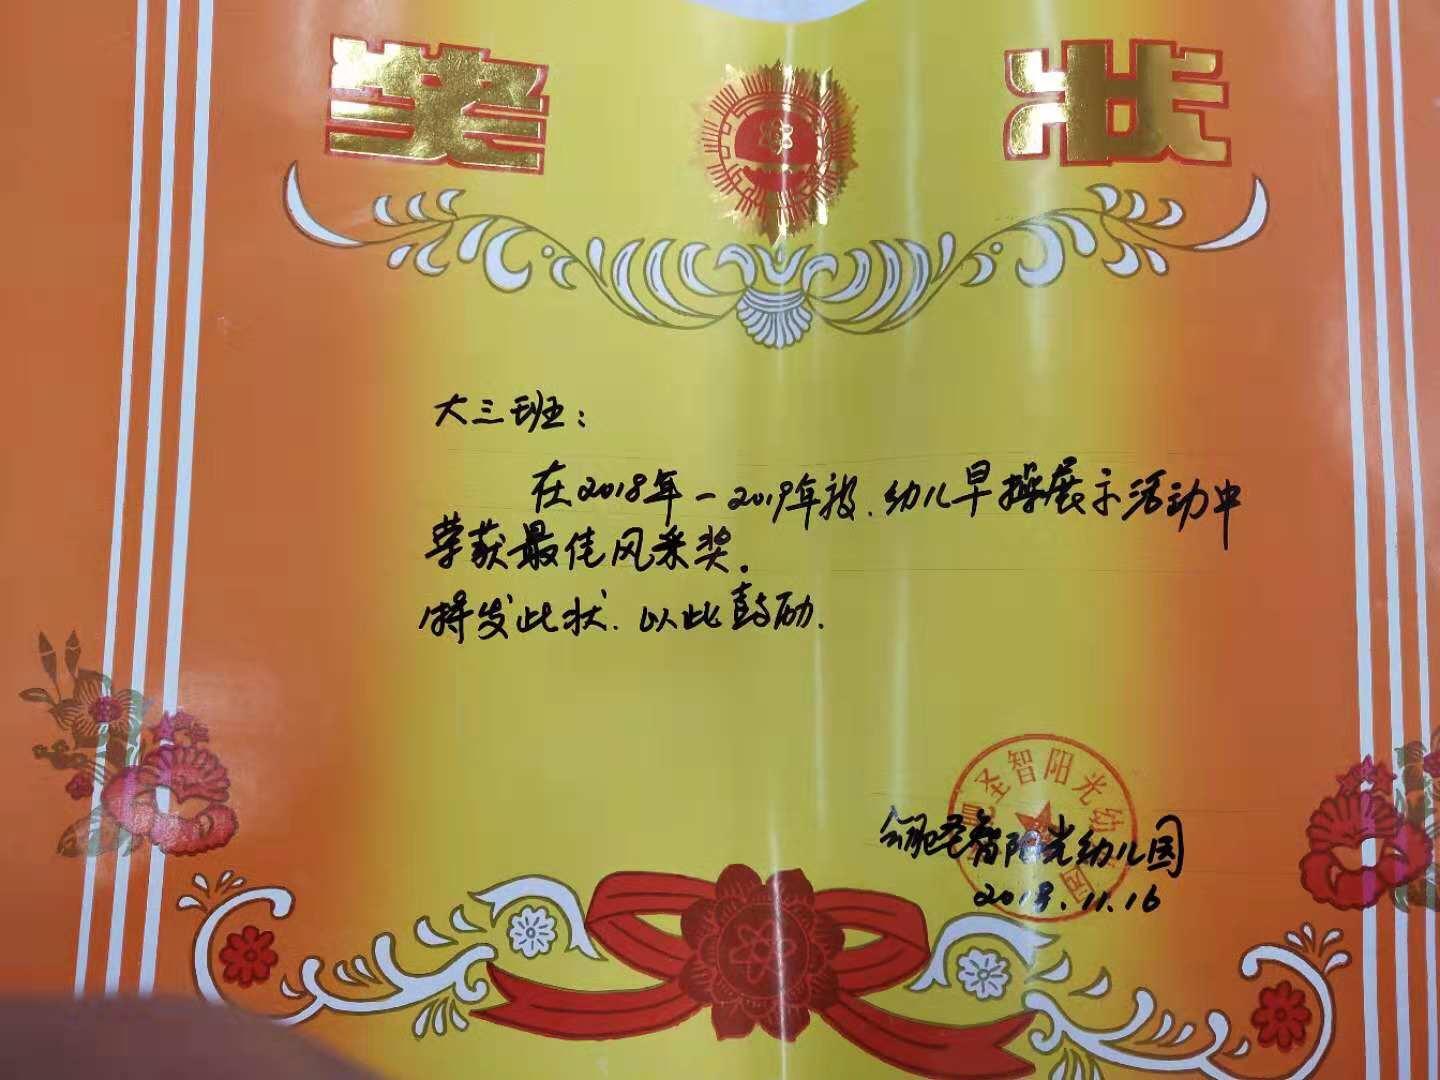 奖 状
大三班：
在2018年-2019年段.幼儿早操展示活动中
荣获最佳风采奖.
特发此状.以此鼓励.
肥圣智阳光幼儿园
合肥圣智阳光幼儿园
2018.11.16